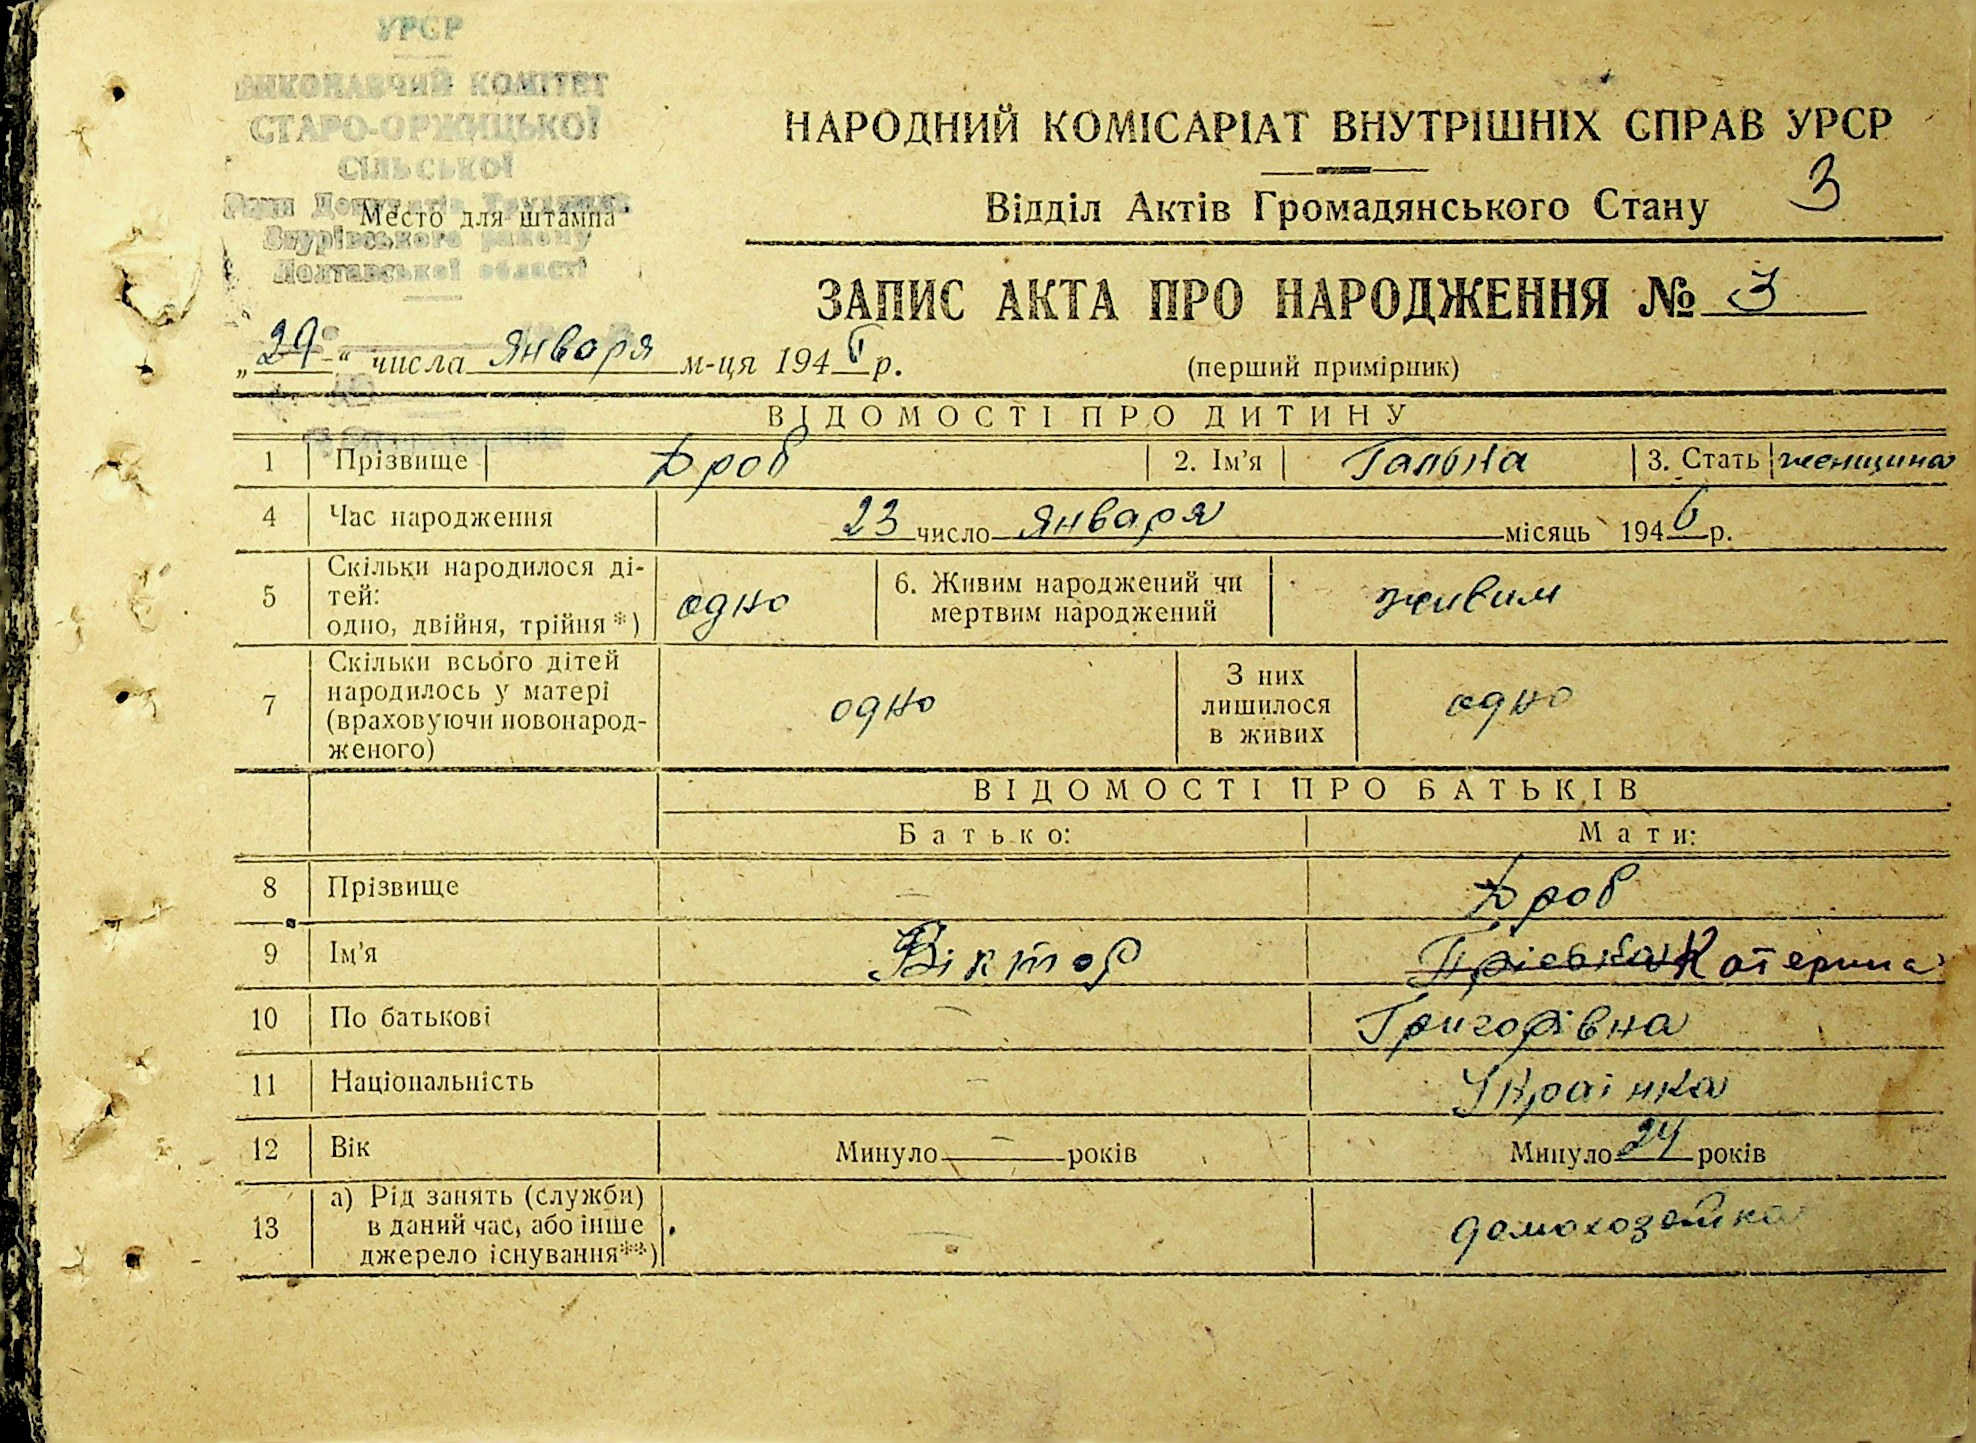 УРСР
ВИКОНАВЧИЙ КОМІТЕТ
СТАРО-ОРЖИЦЬКОЇ
СІЛЬСЬКОЇ
Ради Депутатів Трудящих
Згурівського району
Полтавської області
Место для штампа
НАРОДНИЙ КОМІСАРІАТ ВНУТРІШНІХ СПРАВ УРСР
Відділ Актів Громадянського Стану 3
ЗАПИС АКТА ПРО НАРОДЖЕННЯ № 3
„29“ числа Января м-ця 1946 р. (перший примірник)
ВІДОМОСТІ ПРО ДИТИНУ
1 Прізвище Дроб 2. Ім'я Гальна 3. Стать женщина
4 Час народження 23 число Января місяць 1946 р.
5 Скільки народилося ді-
тей:
одно, двійня, трійня *) одно 6. Живим народжений чи
мертвим народжений живим
7 Скільки всього дітей
народилось у матері
(враховуючи новонарод-
женого) одно З них
лишилося
в живих одно
ВІДОМОСТІ ПРО БАТЬКІВ
Батько: Мати:
8 Прізвище — Дроб
9 Ім'я Віктор Катерина
10 По батькові — Григорівна
11 Національність — Українка
12 Вік Минуло — років Минуло 24 років
13 а) Рід занять (служби)
в даний час, або інше
джерело існування**) — домохозяйка